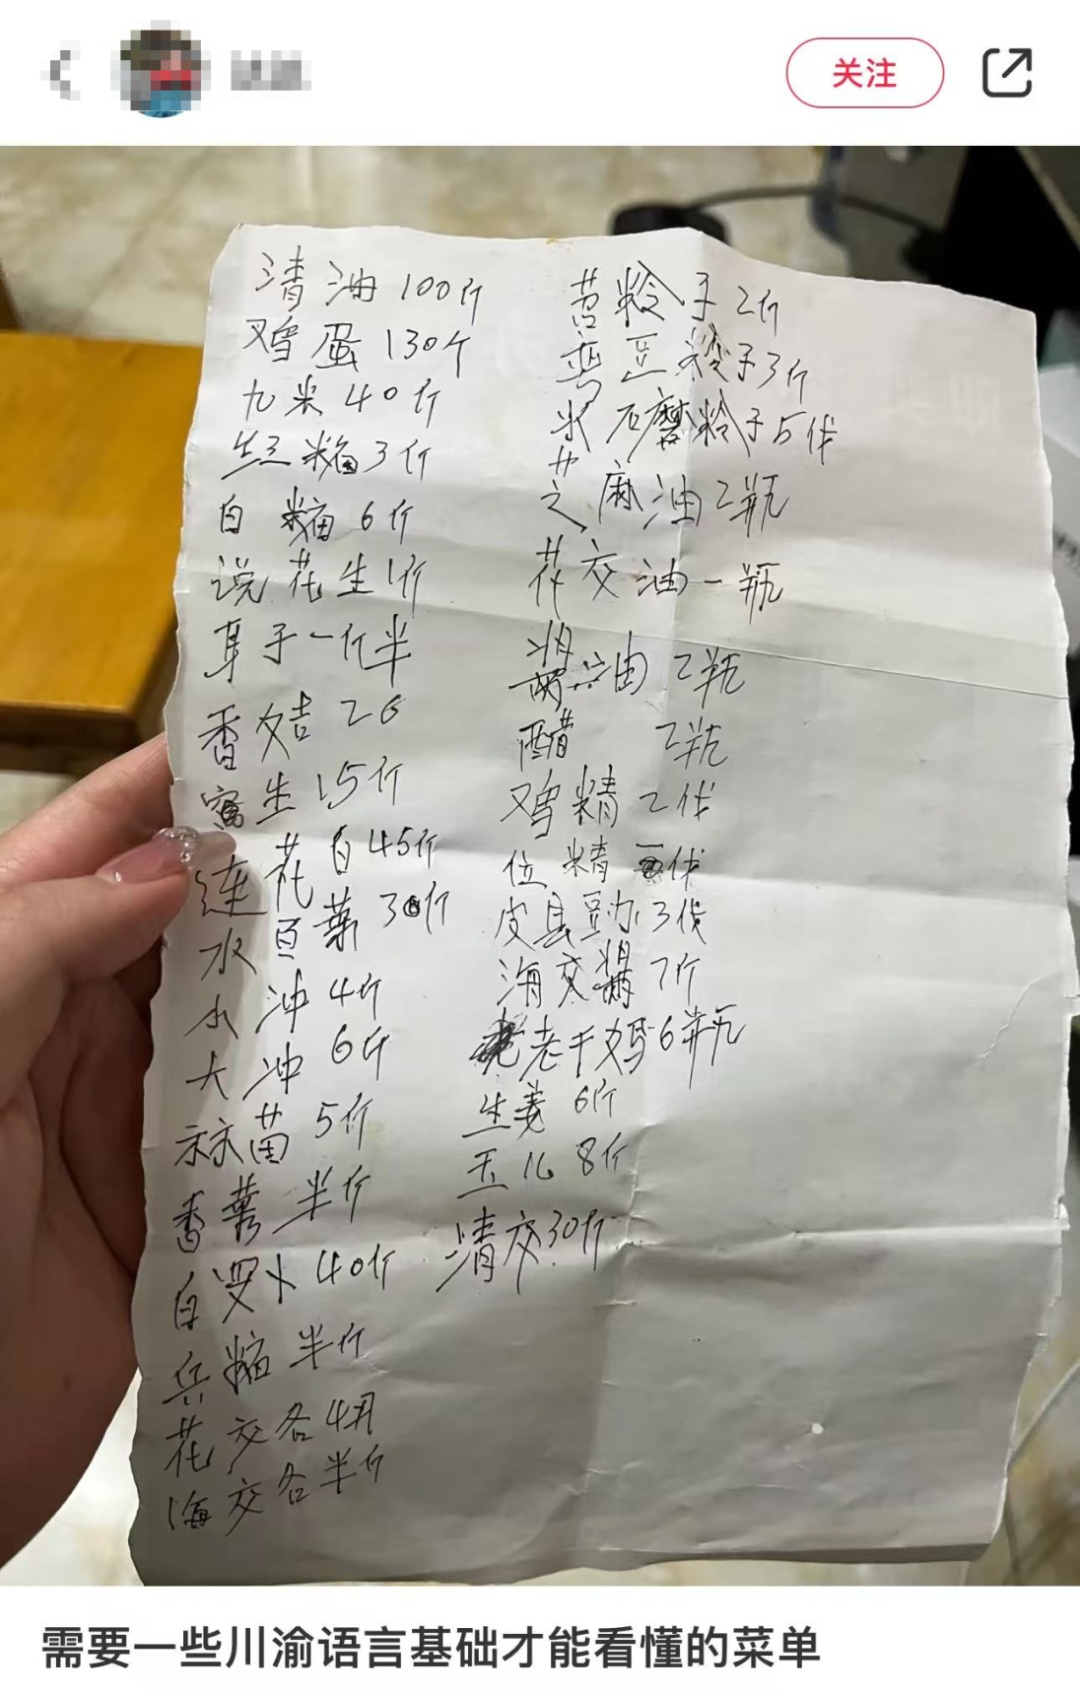 关注
清油100斤
鸡蛋130个
九米40斤
红糖3斤
白糖6斤
说花生1斤
耳子一斤半
香菇26
生15斤
连花白45斤
水百菜30斤
小冲4斤
大冲6斤
蒜苗5斤
香菜半斤
白罗卜40斤
兵糖半斤
花交各4两
海交各半斤
苕粉子2斤
豆粉子3斤
水石磨粉子5代
芝麻油2瓶
花交油一瓶
酱油2瓶
醋 2瓶
鸡精2代
位精 代
皮县豆办3代
海交酱7斤
老干妈6瓶
生姜6斤
玉儿8斤
清交30斤
需要一些川渝语言基础才能看懂的菜单